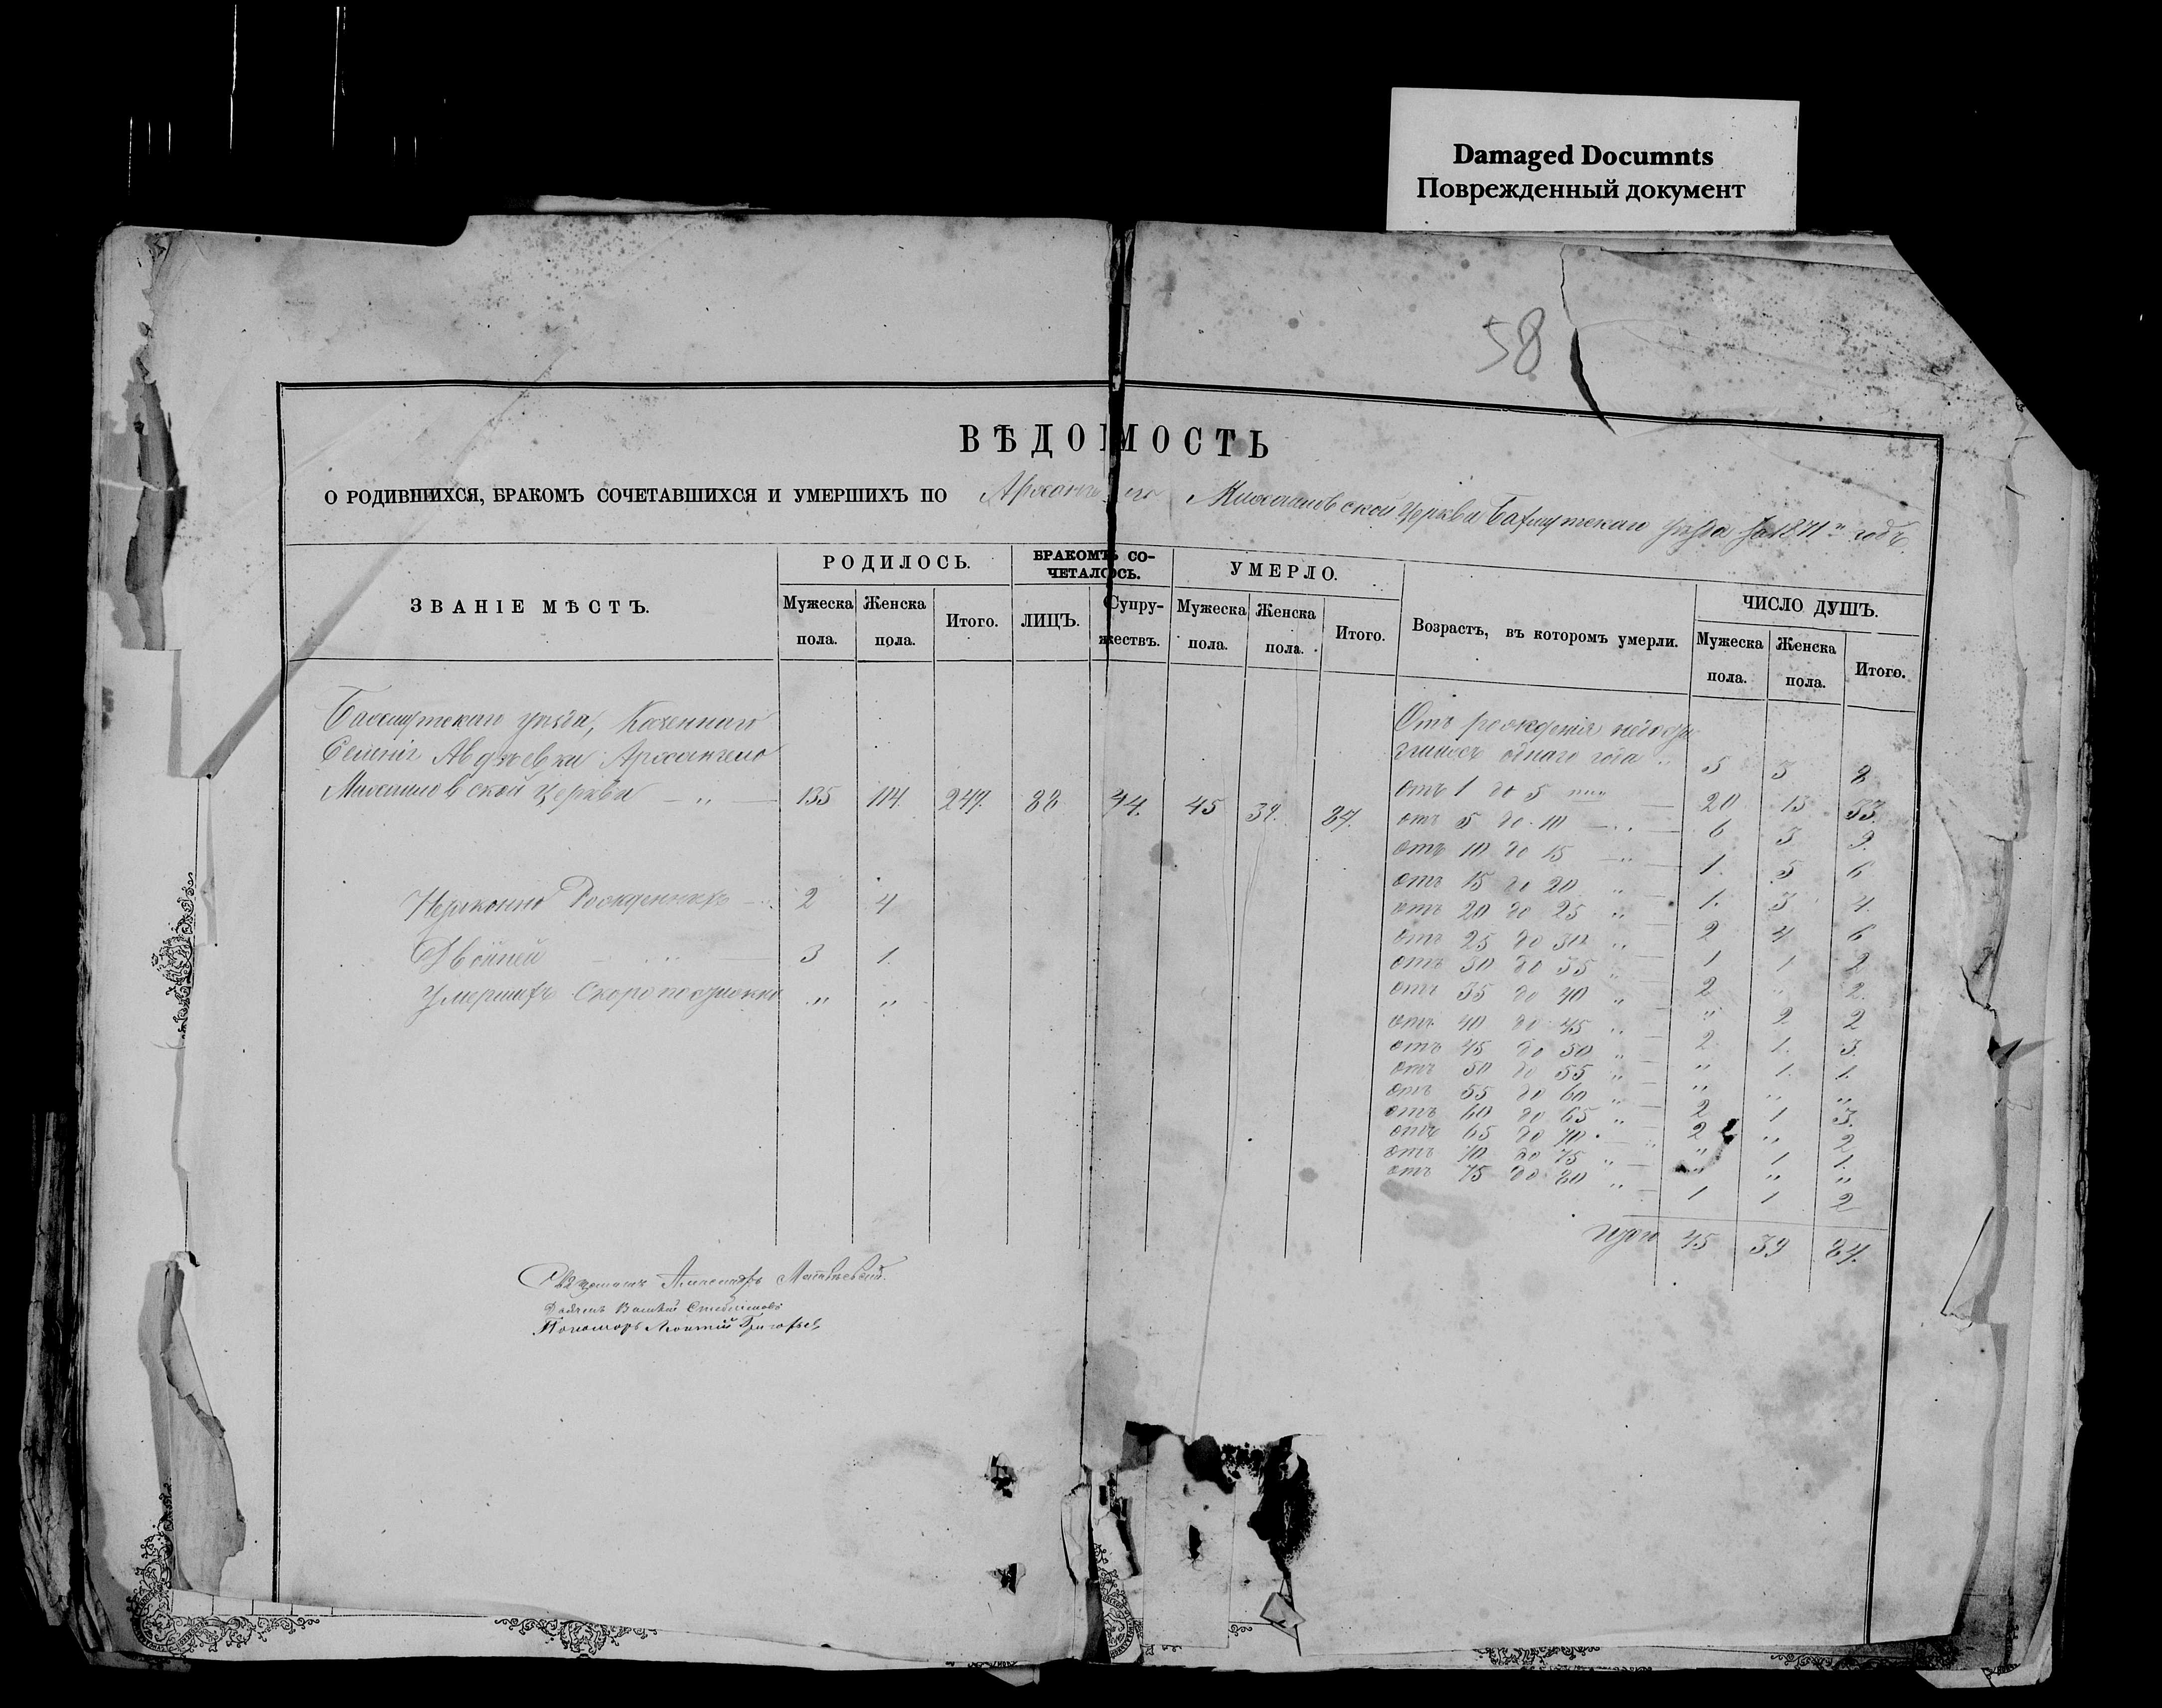 Damaged Documnts
Поврежденный документ
58
ВѢДОМОСТЬ
О РОДИВШИХСЯ, БРАКОМЪ СОЧЕТАВШИХСЯ И УМЕРШИХЪ ПО Архангело Михаиловской Церкви Бахмутскаго уѣзда За 1871й годъ.
ЗВАНІЕ МѢСТЪ.
РОДИЛОСЬ.
Мужеска пола.
Женска пола.
Итого.
БРАКОМЪ СО-
ЧЕТАЛОСЬ.
ЛИЦЪ.
Супру-
жествъ.
УМЕРЛО.
Мужеска пола.
Женска пола.
Итого.
Возрастъ, въ которомъ умерли.
ЧИСЛО ДУШЪ.
Мужеска пола.
Женска пола.
Итого.
Бахмутскаго уѣзда, Казеннаго
Селенія Авдѣевки Архангело
Михаиловской Церкви — „ — 135 114. 249. 88 44. 45 39. 84.
Незаконно Рожденныхъ 2 4
Двойней — „ — 3 1.
Умершихъ Скоропостижно „ „
Отъ рожденія
одного года „ 5 3 8
отъ 1 до 5 20 13 33.
отъ 5 до 10 — „ — 6 3 9.
отъ 10 до 15 — „ — 1. 5 6
отъ 15 до 20 „ — 1. 3 4.
отъ 20 до 25 „ — 2 4 6
отъ 25 до 30 „ — 1 1 2
отъ 30 до 35 „ — 2 „ 2.
отъ 35 до 40 „ — „ 2 2
отъ 40 до 45 „ — 2 1. 3.
отъ 45 до 50 „ — „ 1. 1.
отъ 50 до 55 „ — „ „ „
отъ 55 до 60 „ — 2 1 3.
отъ 60 до 65 „ — 2 „ 2
отъ 65 до 70 „ „ 1 1.
отъ 70 до 75 „ — „ „ „
отъ 75 до 80 „ — 1 1 2
Итого 45 39 84.
Священникъ Александръ
Дьячекъ Василій
Пономарь Леонтій Григорьевъ